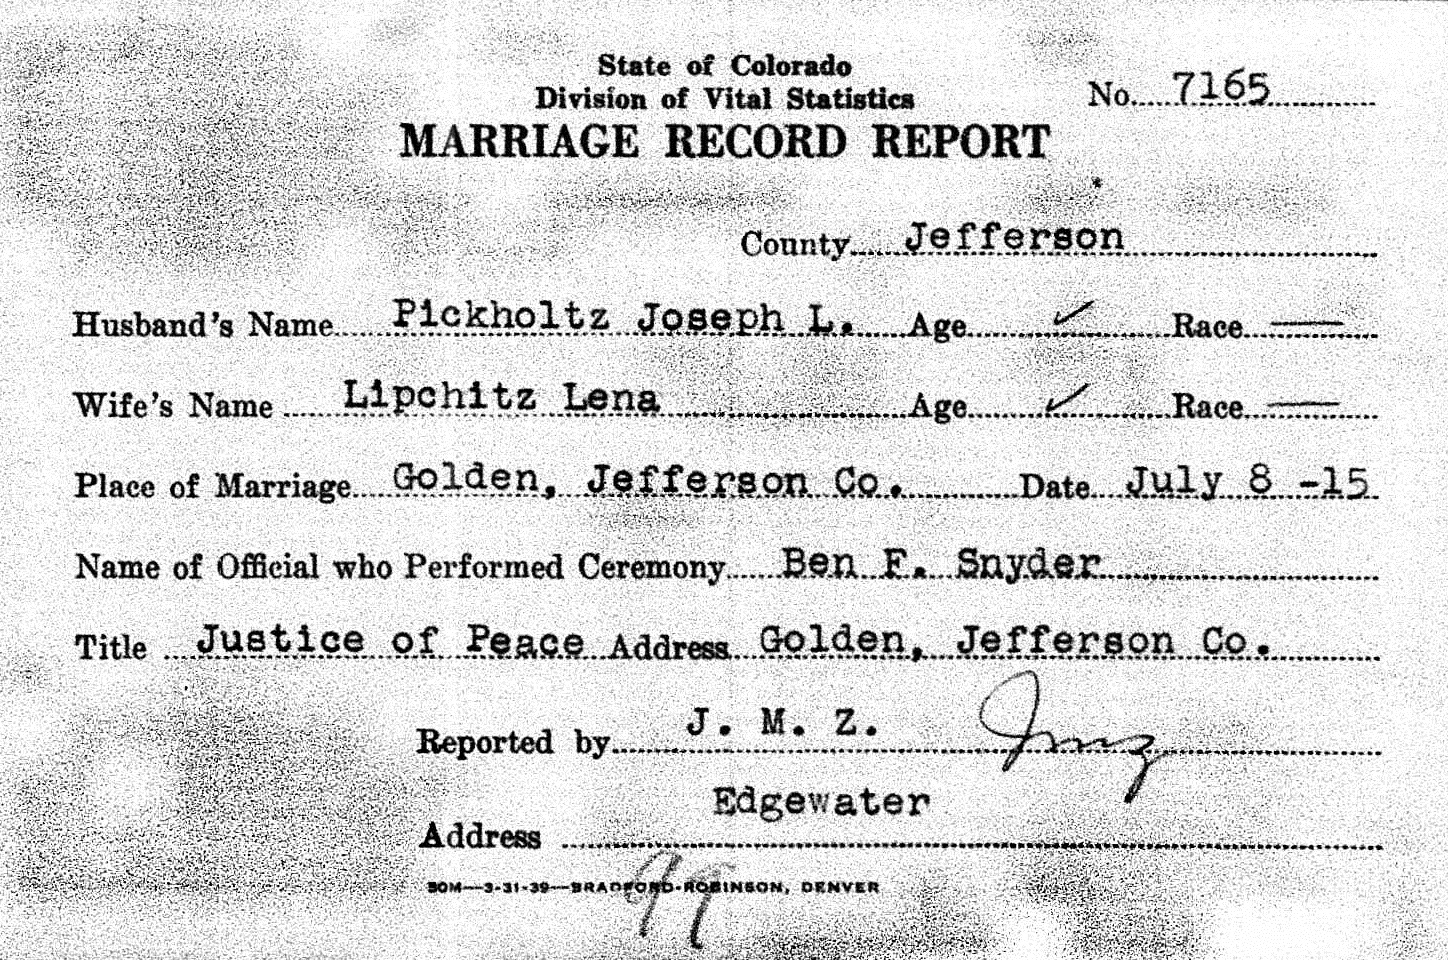 State of Colorado
Division of Vital Statistics
No. 7165
MARRIAGE RECORD REPORT
County Jefferson
Husband's Name Pickholtz Joseph L. Age ✓ Race —
Wife's Name Lipchitz Lena Age ✓ Race —
Place of Marriage Golden, Jefferson Co. Date July 8 -15
Name of Official who Performed Ceremony Ben F. Snyder
Title Justice of Peace Address Golden, Jefferson Co.
Reported by J. M. Z. Jmz
Edgewater
Address
50M—3-31-39—BRADFORD-ROBINSON, DENVER